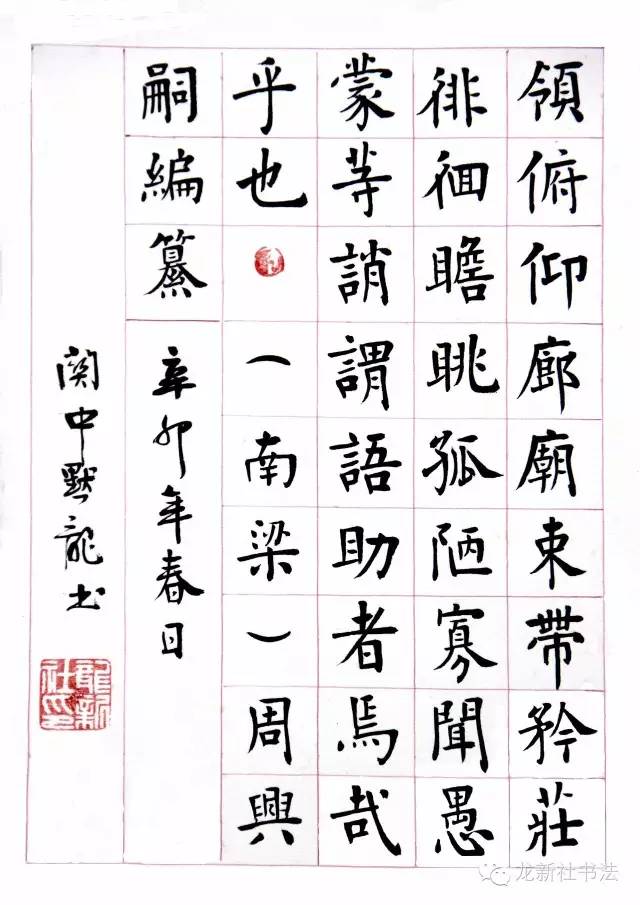 領俯仰廊廟束帶矜莊
徘徊瞻眺孤陋寡聞愚
蒙等誚謂語助者焉哉
乎也
（南梁）周興
嗣編纂
辛卯年春日
関中默龍书
龍新社印
龙新社书法